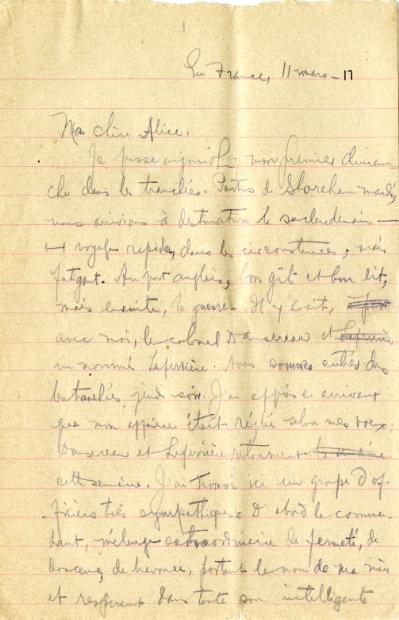 En France, 11 mars - 17
Ma chère Alice,
Je passe aujourd'hui mon premier diman-
che dans les tranchées. Partis de Shoreham mardi,
nous arrivions à destination le surlendemain —
voyage rapide, dans les circonstances, mais
fatigant. Au port anglais, bon gîte et bon lit,
mais ensuite, la guerre. Il y avait,
avec moi, le colonel Dansereau et
un nommé Laferrière. Nous sommes entrés dans
les tranchées jeudi soir. J'ai appris en arrivant
que mon affaire était réglée selon mes vœux.
Dansereau et Laferrière retournent
cette semaine. J'ai trouvé ici un groupe d'of-
ficiers très sympathiques. D'abord le comman-
dant, mélange extraordinaire de fermeté, de
douceur, de bravoure, portant le nom de ma mère
et respirant dans toute son intelligente